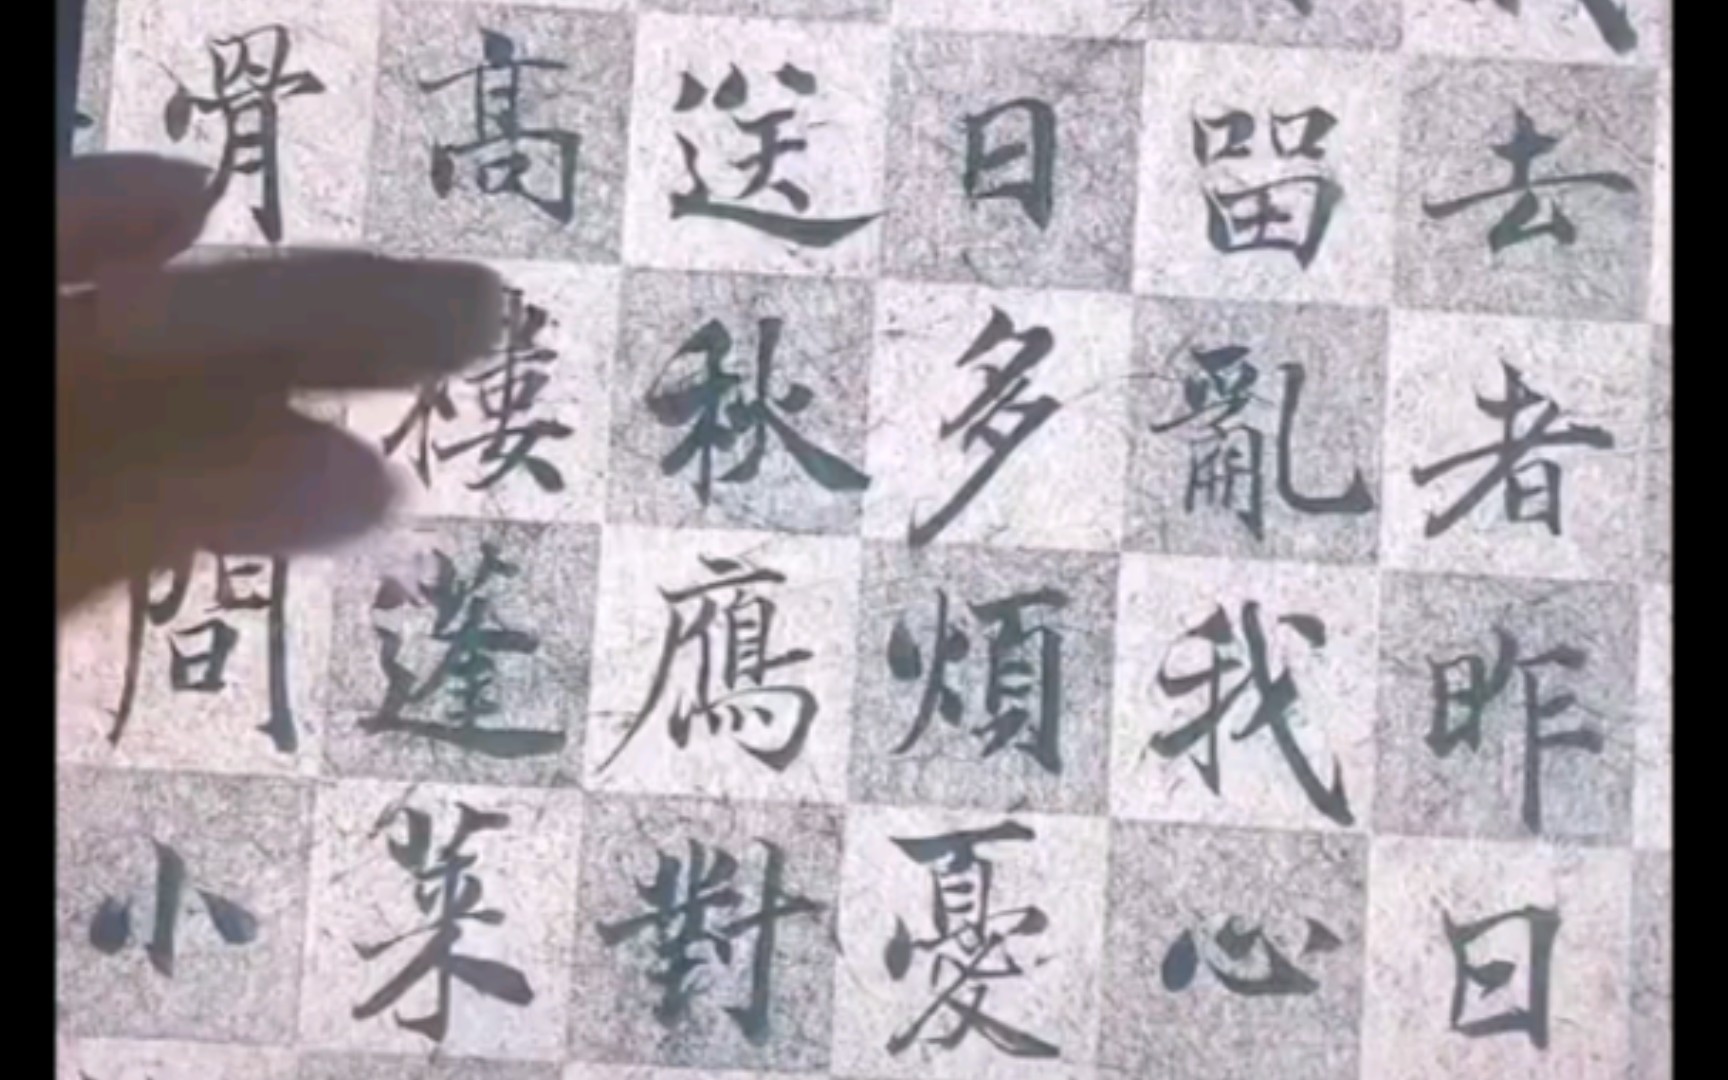 去者昨日
留亂我心
日多煩憂
送秋鴈對
高樓蓬萊
骨間小